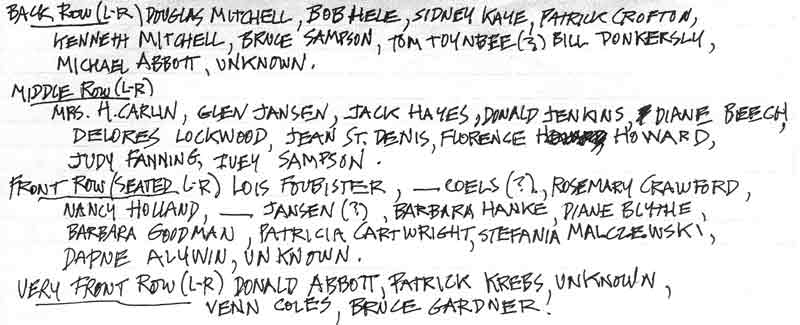 BACK ROW (L-R) DOUGLAS MITCHELL, BOB HELE, SIDNEY KAYE, PATRICK CROFTON,
KENNETH MITCHELL, BRUCE SAMPSON, TOM TOYNBEE (?) BILL DONKERSLY,
MICHAEL ABBOTT, UNKNOWN.
MIDDLE ROW (L-R)
MRS. H. CARLIN, GLEN JANSEN, JACK HAYES, DONALD JENKINS, DIANE BEECH,
DELORES LOCKWOOD, JEAN ST. DENIS, FLORENCE HOWARD,
JUDY FANNING, IVEY SAMPSON.
FRONT ROW (SEATED L-R) LOIS FOUBISTER, — COELS (?), ROSEMARY CRAWFORD,
NANCY HOLLAND, — JANSEN (?), BARBARA HANKE, DIANE BLYTHE,
BARBARA GOODMAN, PATRICIA CARTWRIGHT, STEFANIA MALCZEWSKI,
DAPNE ALYWIN, UNKNOWN.
VERY FRONT ROW (L-R) DONALD ABBOTT, PATRICK KREBS, UNKNOWN,
VENN COLES, BRUCE GARDNER.